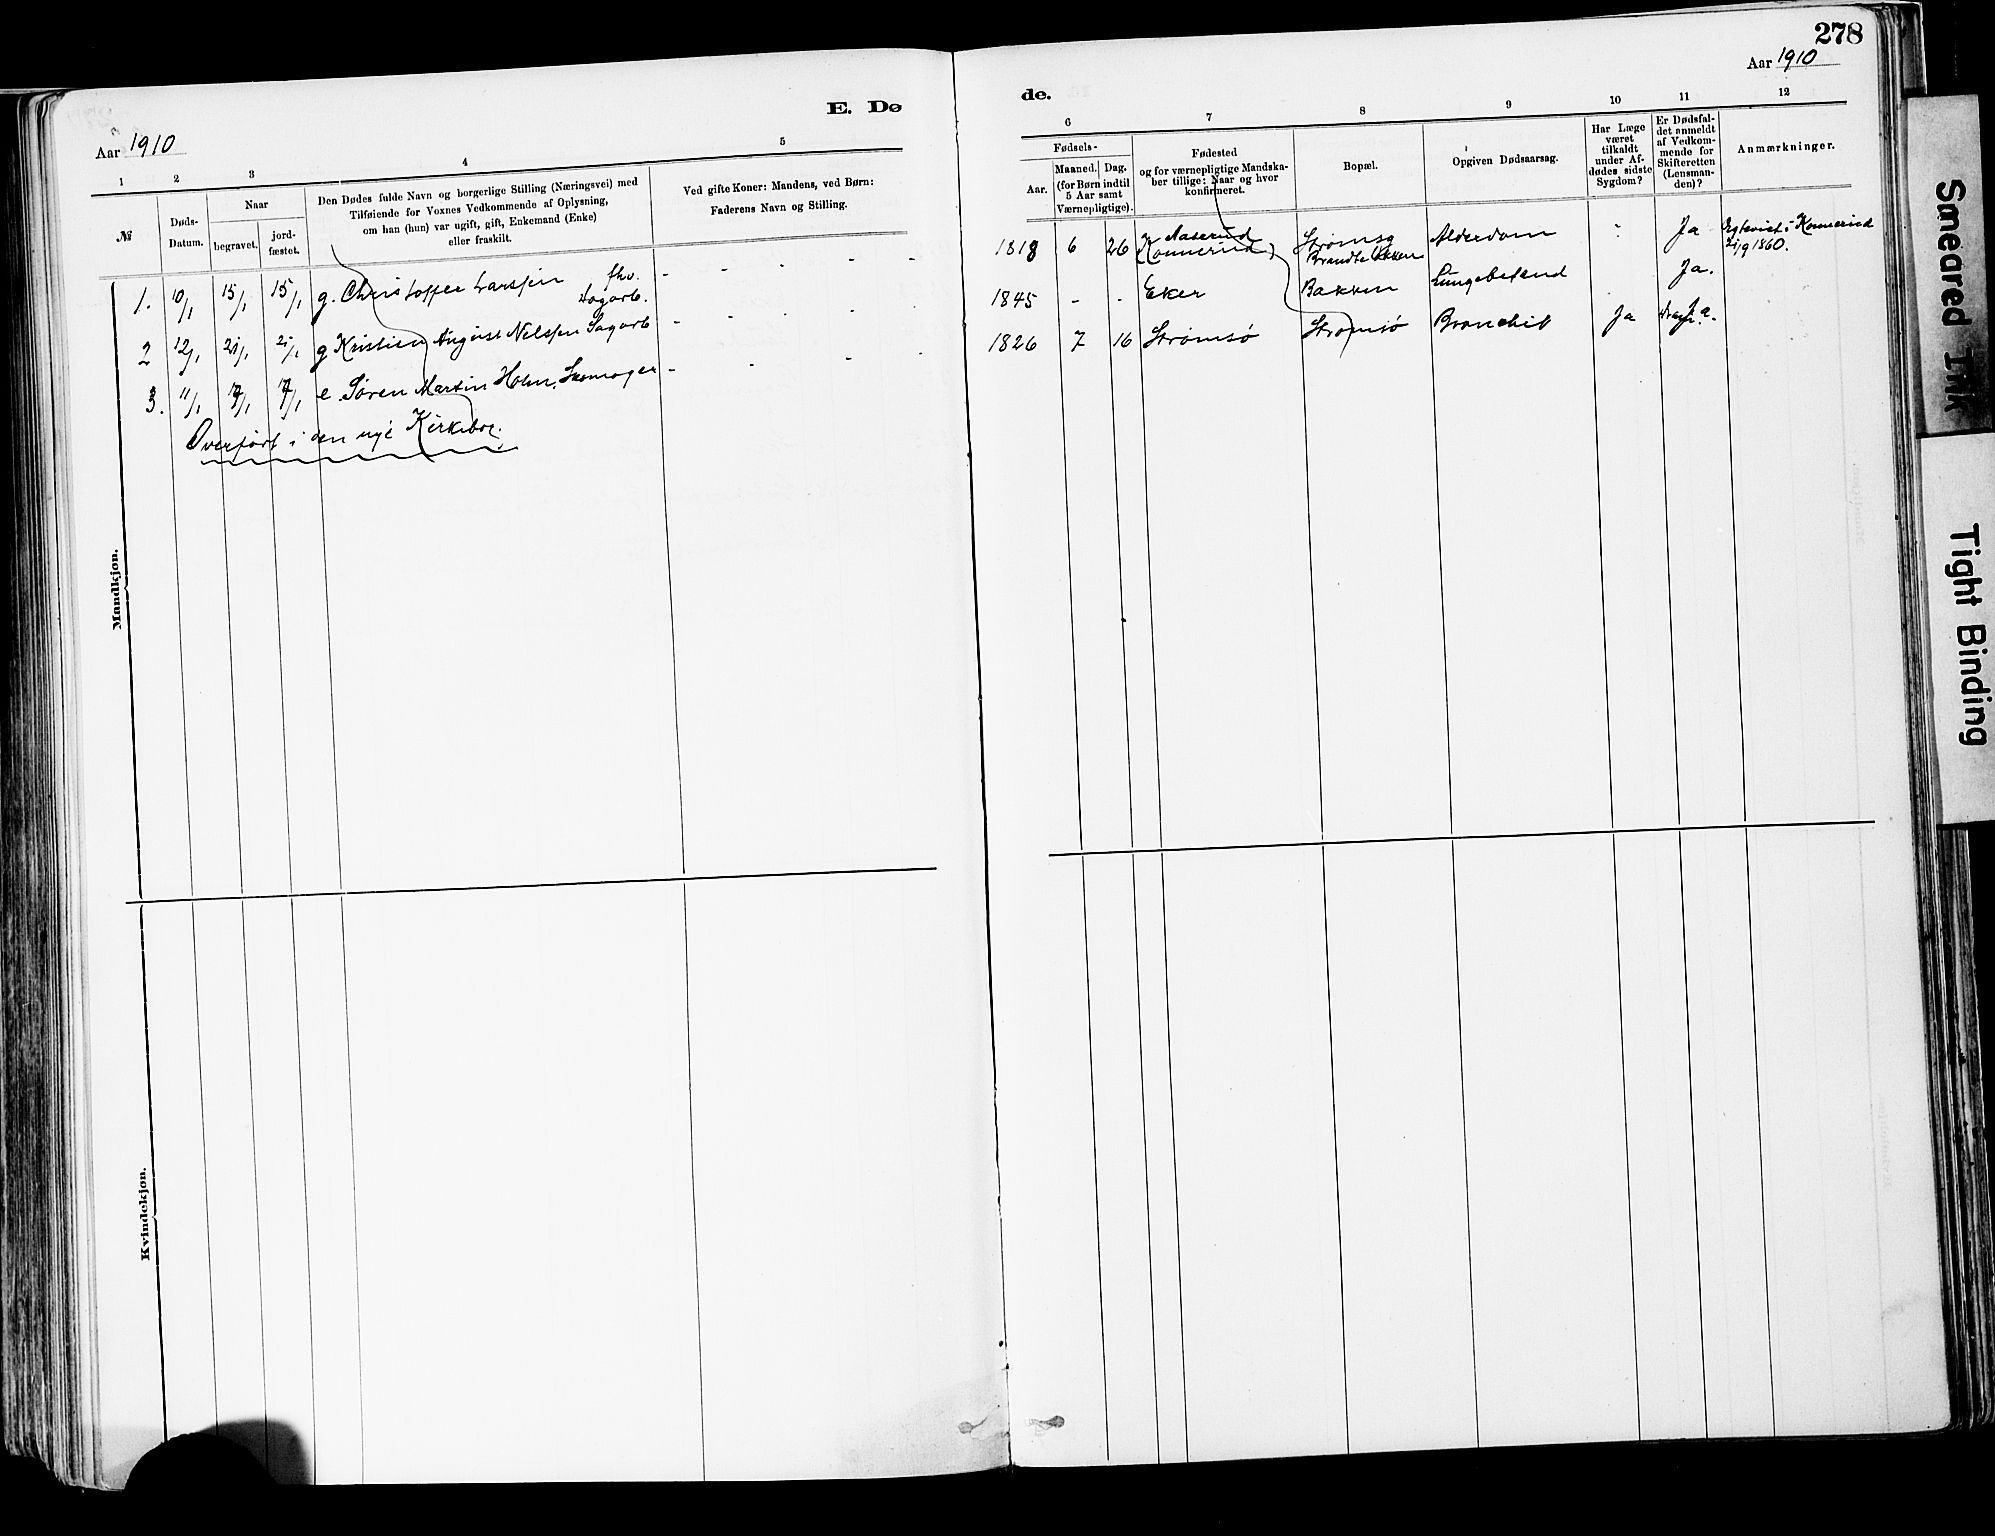 278
Aar 1910
E. Dø
de.
Aar 1910
1 2 3 4 5
6 7 8 9 10 11 12
№
Døds-Datum.
Naar
begravet.
jord-fæstet.
Den Dødes fulde Navn og borgerlige Stilling (Næringsvei) med
Tilføiende for Voxnes Vedkommende af Oplysning,
om han (hun) var ugift, gift, Enkemand (Enke)
eller fraskilt.
Ved gifte Koner: Mandens, ved Børn:
Faderens Navn og Stilling.
Fødsels-
Aar.
Maaned. Dag.
(for Børn indtil
5 Aar samt
Værnepligtige).
Fødested
og for værnepligtige Mandska-
ber tillige: Naar og hvor
konfirmeret.
Bopæl.
Opgiven Dødsaarsag.
Har Læge
været
tilkaldt
under Af-
dødes sidste
Sygdom?
Er Dødsfal-
det anmeldt
af Vedkom-
mende for
Skifteretten
(Lensman-
den)?
Anmærkninger.
Mandkjøn.
1. 10/1 15/1 15/1 g. Christoffer Larssen fhv.
Dagarb.
2 12/1 21/1 21/1 g Kristian August Nelssen Sagarb
3. 11/1 17/1 17/1 e. Søren Martin Holm, Skomager
Overført i den nye Kirkebog.
1818 6 26 Aaserud
(Konnerud) Strømsg
Brandtebakken Alderdom Ja i Konnerud
1860.
1845 - - Eker Bakken Lungebetænd Ja.
1826 7 16 Strømsø Strømsø Bronchit Ja Ja.
Kvindekjøn.
Smeared Ink
Tight Binding